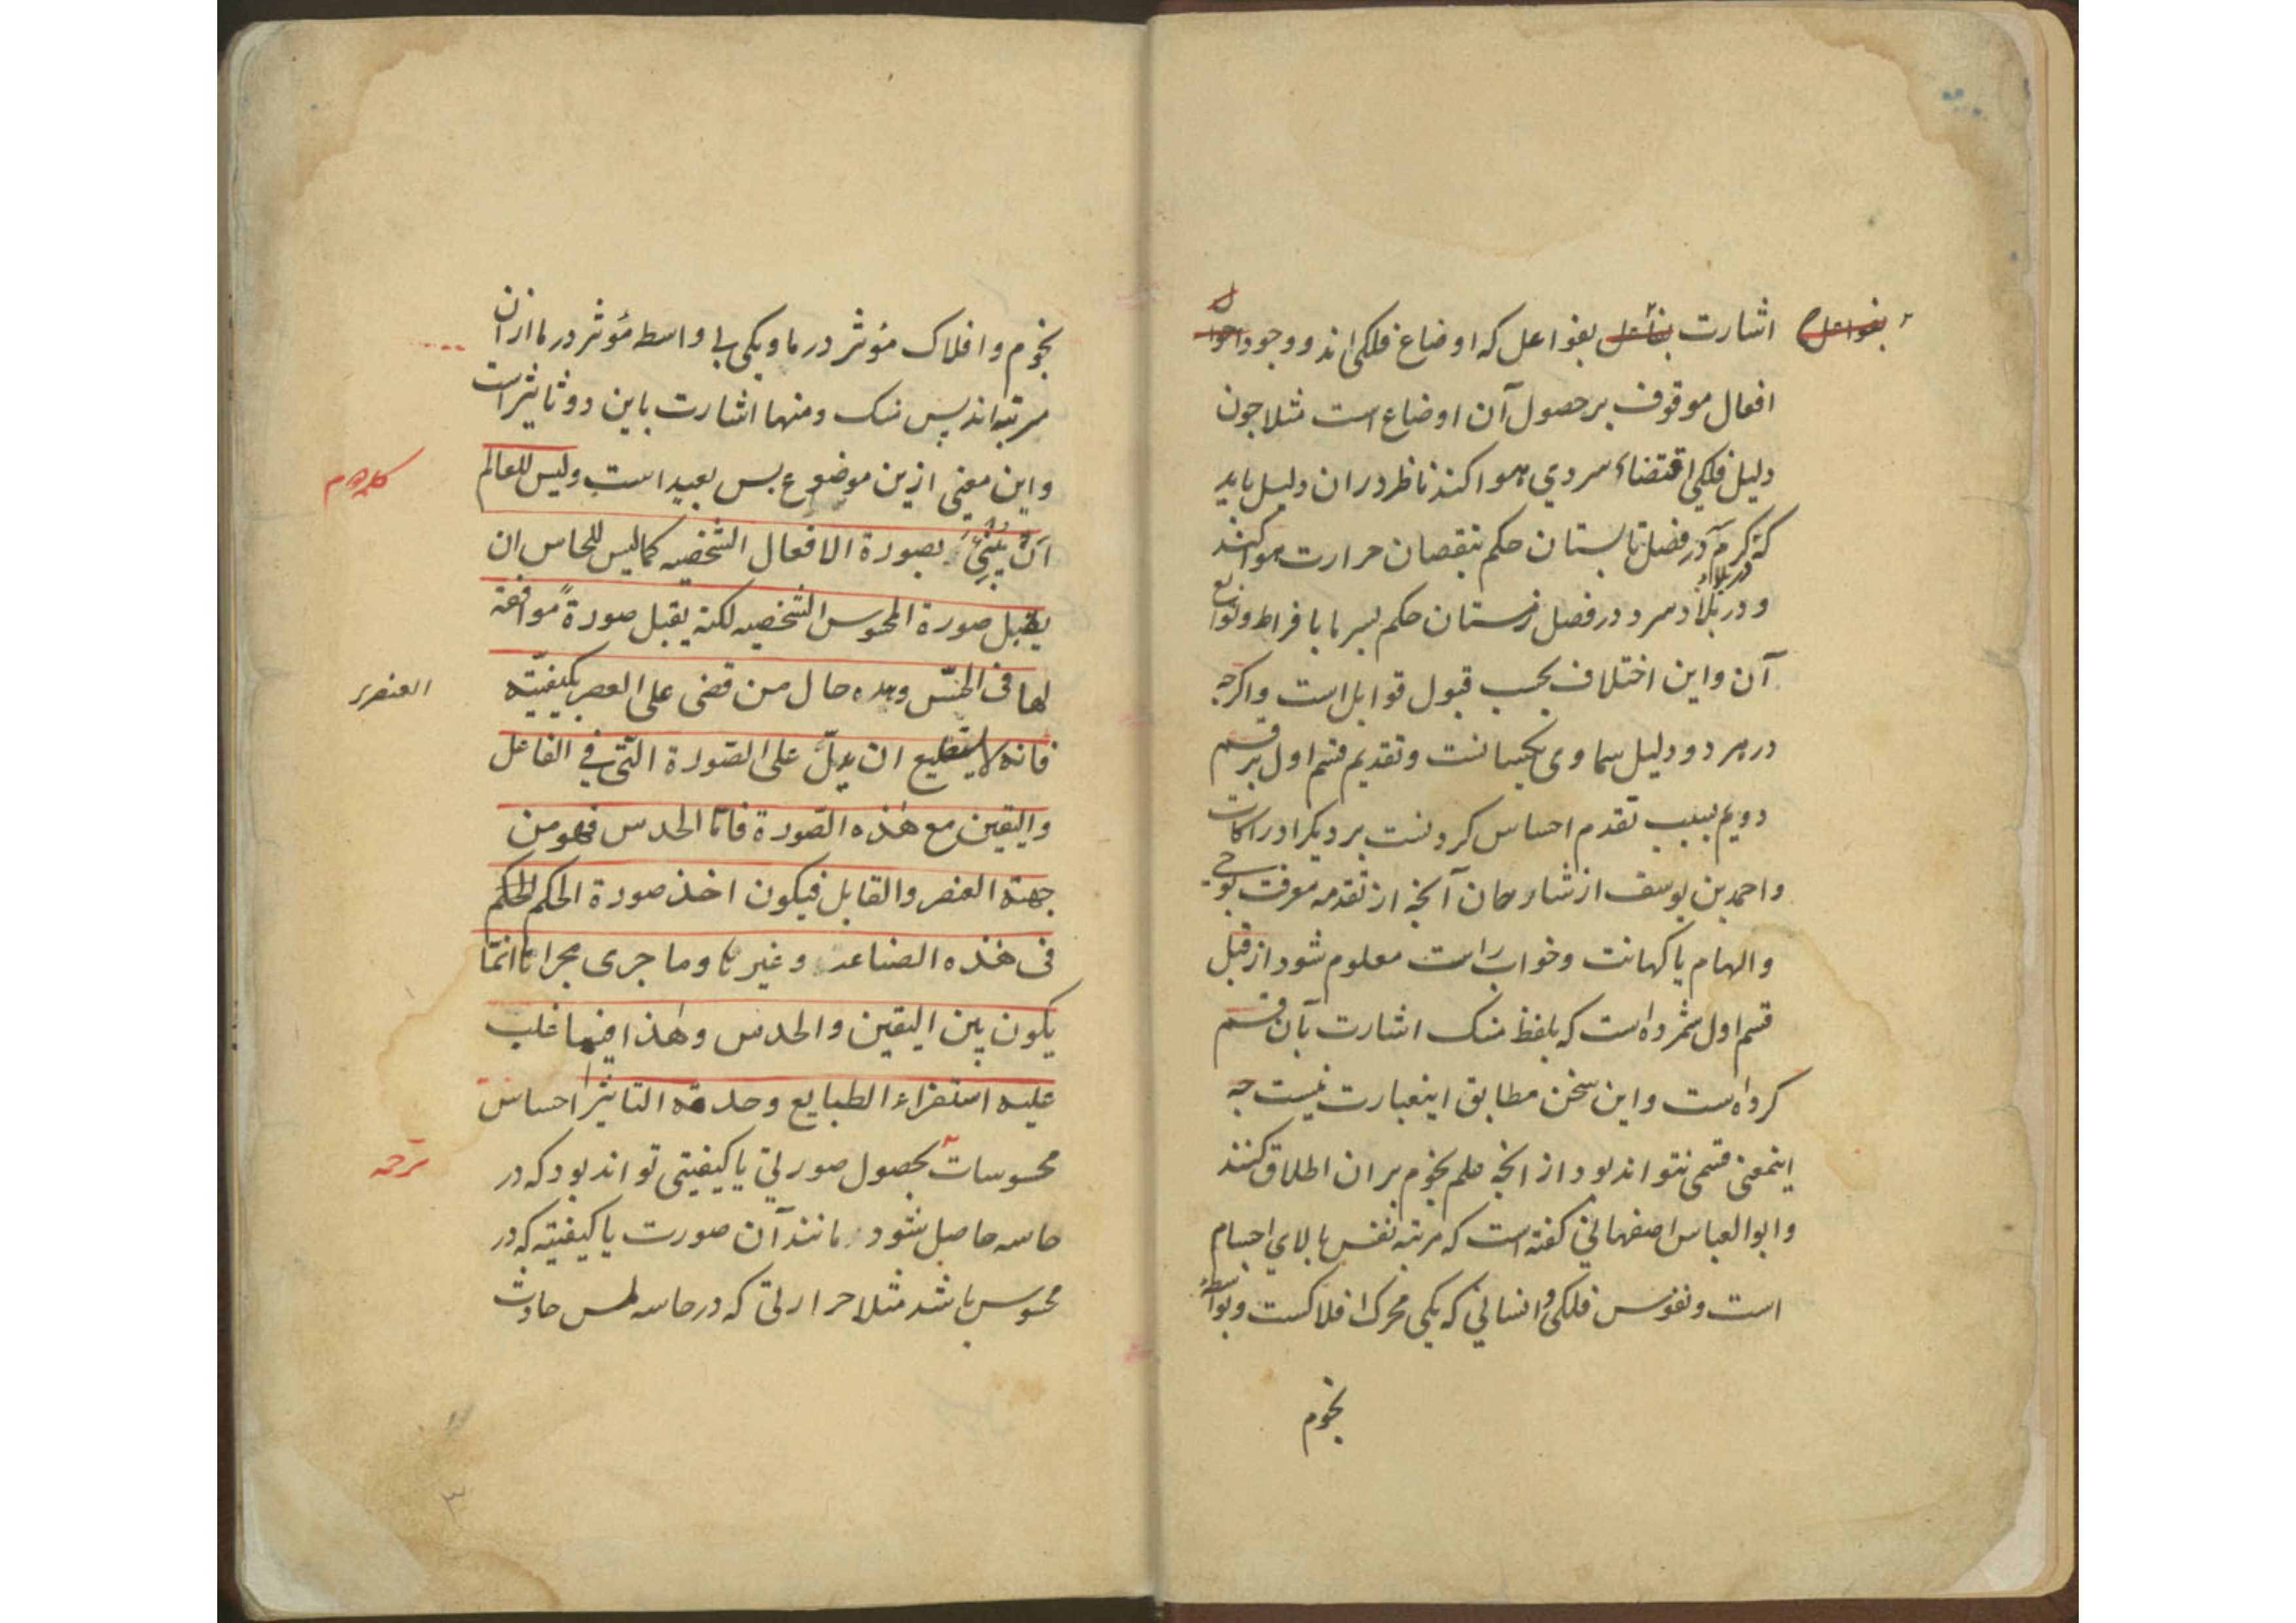 اشارت بفواعل که اوضاع فلکی اند و وجود
افعال موقوف بر حصول آن اوضاع است مثلا چون
دلیل فلکی اقتضاء سردی هوا کند ناظر در ان دلیل باید
که در فصل تابستان حکم بنقصان حرارت هوا کند
و در بلاد سرد در فصل زمستان حکم بسرما بافراط و توابع
آن و این اختلاف بحسب قبول قوابل است و اگرچه
در هر دو دلیل سماوی یکسانست و تقدیم قسم اول بر قسم
دویم بسبب تقدم احساس کردنست بر دیگر ادراکات
و احمد بن یوسف از شارحان آنچه از تقدمه معرفت بوحی
و الهام یا کهانت و خواب راست معلوم شود از قبل
قسم اول شمرده است که بلفظ منک اشارت بآن قسم
کرده است و این سخن مطابق اینعبارت نیست چه
اینمعنی قسمی نتواند بود از آنچه علم نجوم بر ان اطلاق کنند
و ابو العباس اصفهانی گفته است که مرتبه نفس بالای اجسام
است و نفوس فلکی و انسانی که یکی محرک افلاکست و بواسطهٔ
نجوم
نجوم و افلاک مؤثر در ما و یکی بی واسطه مؤثر در ما از ان
مرتبه اند پس منک و منها اشارت باین دو تاثیر است
و این معنی ازین موضوع بس بعید است ولیس للعالم
کلمه دوم
ان ینبئ بصورة الافعال الشخصیه کما لیس للحاس ان
یقبل صورة المحسوس الشخصیه لکنه یقبل صورةً موافقة
لها فی الجنس وهذه حال من قضی علی العصر بکیفیّته
العنصر
فانه لا یستطیع ان یدلّ علی الصّورة الّتی فی الفاعل
والیقین مع هذه الصّورة فامّا الحدس فهو من
جهة العنصر والقابل فیکون اخذ صورة الحکم للحکم
فی هذه الصناعة وغیرها وما جری مجراها انّما
یکون بین الیقین والحدس وهذا فیما غلب
علیه استقراء الطبایع وحدة التاثیر احساس
محسوسات بحصول صورتی یا کیفیتی تواند بود که در
ترجمه
حاسه حاصل شود مانند آن صورت یا کیفیته که در
محسوس باشد مثلا حرارتی که در حاسه لمس حادث
۳